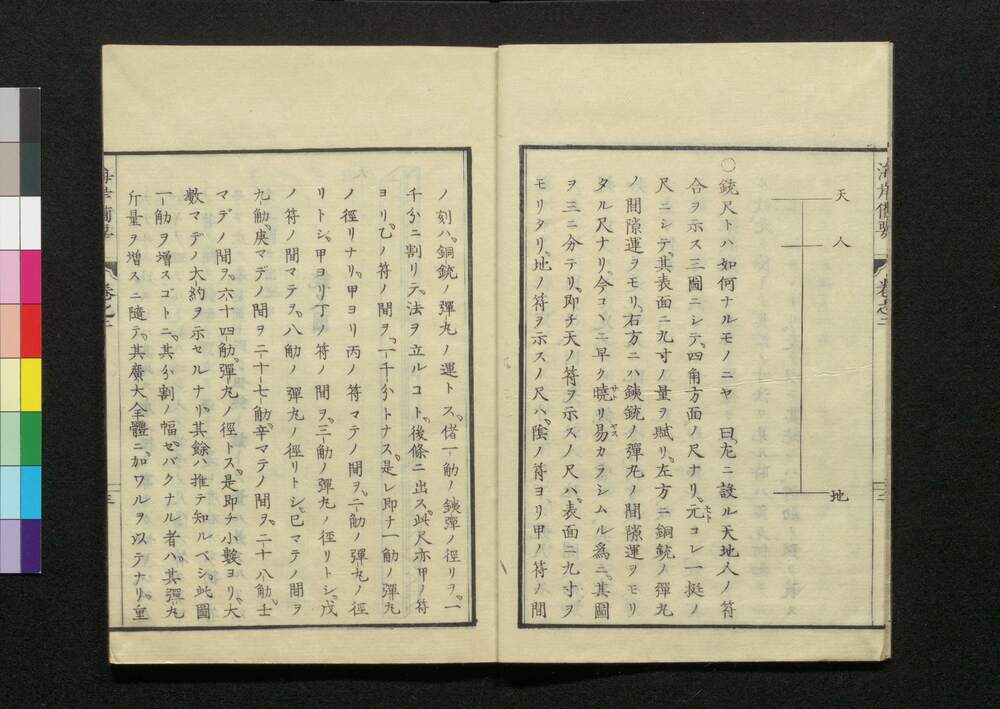 海岸備要
卷之二
三
天
人
地
○銃尺トハ如何ナルモノニヤ曰左ニ設ル天地人ノ符
合ヲ示ス三圖ニシテ四角方面ノ尺ナリ元コレ一挺ノ
尺ニシテ其表面ニ九寸ノ量ヲ賦リ左方ニ銅銃ノ彈丸
ノ間隙運ヲモリ右方ニハ銕銃ノ彈丸ノ間隙運ヲモリ
タル尺ナリ今コヽニ早ク曉リ易カラシムル爲ニ其圖
ヲ三ニ分テリ即チ天ノ符ヲ示スノ尺ハ表面ニ九寸ヲ
モリタリ地ノ符ヲ示スノ尺ハ陰ノ符ヨリ甲ノ符ノ間
ノ刻ハ銅銃ノ彈丸ノ運トス偖一觔ノ銕彈ノ徑リヲ一
千分ニ割リテ法ヲ立ルコト後條ニ出ス此尺亦甲ノ符
ヨリ乙ノ符ノ間ヲ一千分トナス是レ即ナ一觔ノ彈丸
ノ徑リナリ甲ヨリ丙ノ符マテノ間ヲ二觔ノ彈丸ノ徑
リトシ甲ヨリ丁ノ符ノ間ヲ三觔ノ彈丸ノ徑リトシ戊
ノ符ノ間マテヲ八觔ノ彈丸ノ徑リトシ已マテノ間ヲ
九觔庚マデノ間ヲ二十七觔辛マテノ間ヲ二十八觔士
マデノ間ヲ六十四觔彈丸ノ徑トス是即チ小數ヨリ大
數マデノ大約ヲ示セルナリ其餘ハ推テ知ルベシ此圖
一觔ヲ增スゴトニ其分割ノ幅セバクナル者ハ其彈丸
斤量ヲ增スニ隨テ其廣大全體ニ加ワルヲ以テナリ重
海岸備要
卷之二